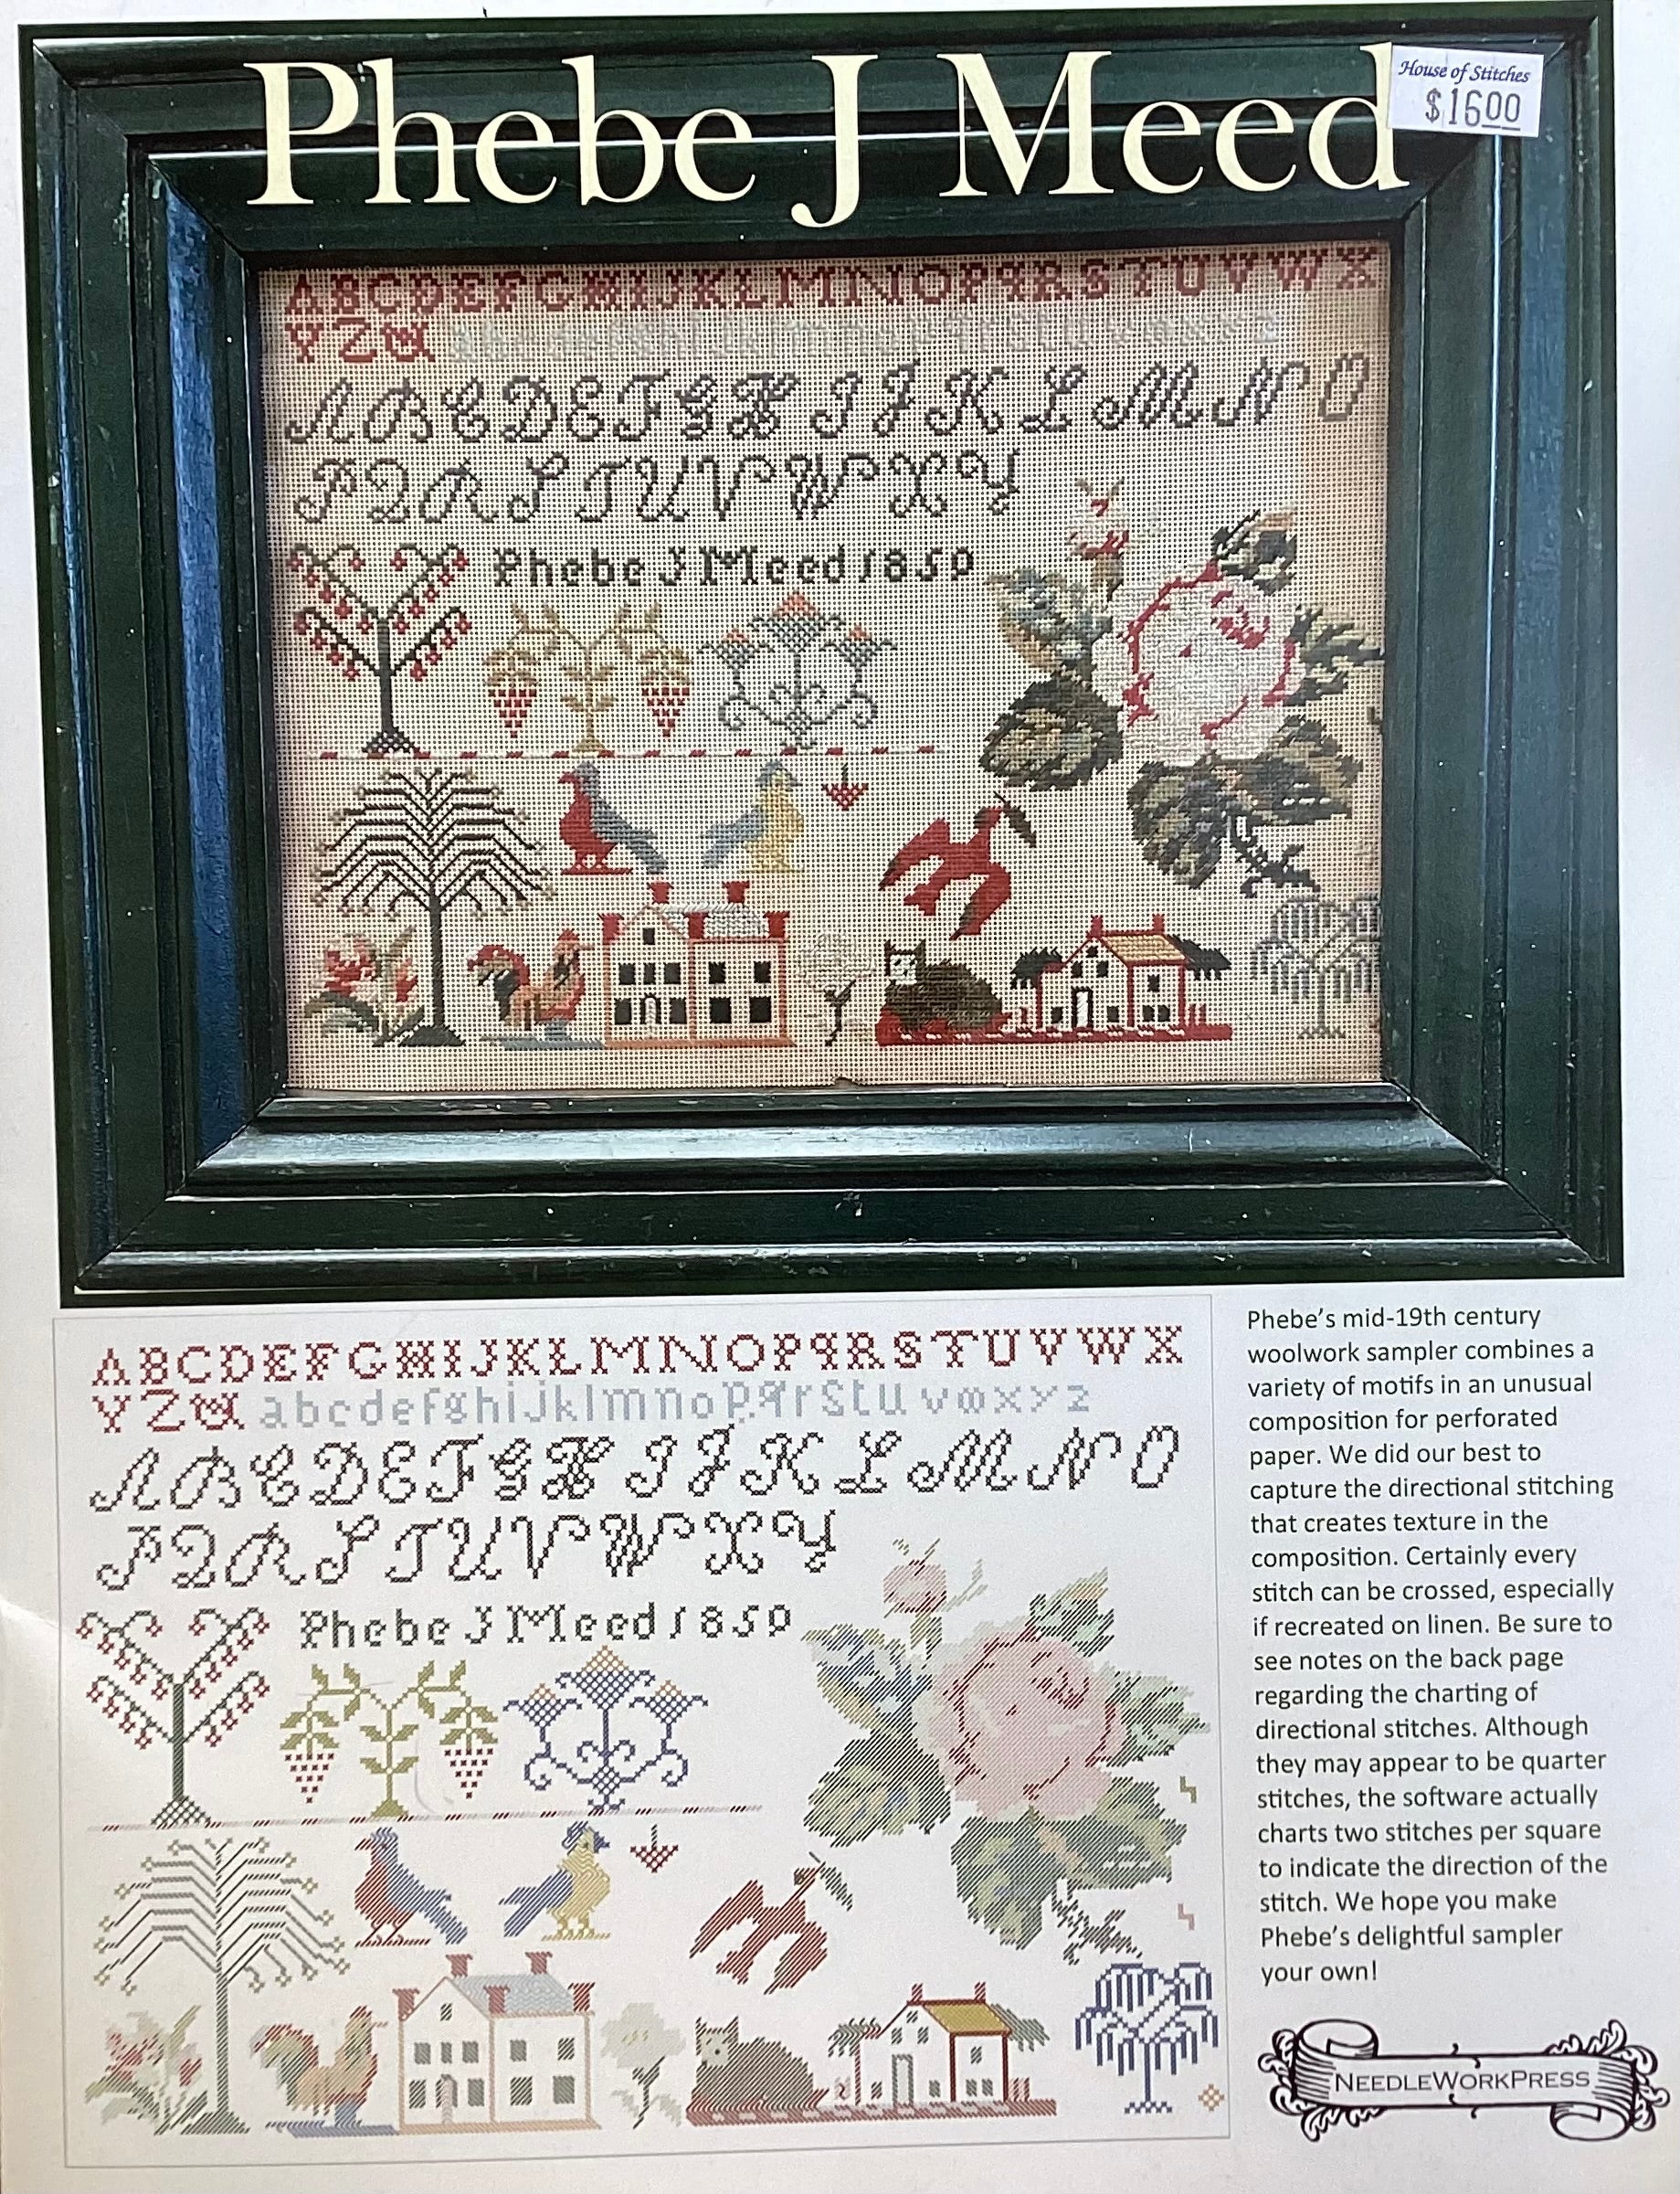 Phebe J Meed
House of Stitches
$1600
ABCDEFGHIJKLMNOPQRSTUVWX
YZ&abcdefghijklmnopqrstuvwxyz
ABCDEFGHIJKLMNO
PQRSTUVWXY
Phebe J Meed 1850
ABCDEFGHIJKLMNOPqRSTUVWX
YZ& abcdefghijklmnopqrstuvwxyz
ABCDEFGHIJKLMNO
PQRSTUVWXY
Phebe J Meed 1850
Phebe's mid-19th century
woolwork sampler combines a
variety of motifs in an unusual
composition for perforated
paper. We did our best to
capture the directional stitching
that creates texture in the
composition. Certainly every
stitch can be crossed, especially
if recreated on linen. Be sure to
see notes on the back page
regarding the charting of
directional stitches. Although
they may appear to be quarter
stitches, the software actually
charts two stitches per square
to indicate the direction of the
stitch. We hope you make
Phebe's delightful sampler
your own!
NEEDLEWORKPRESS